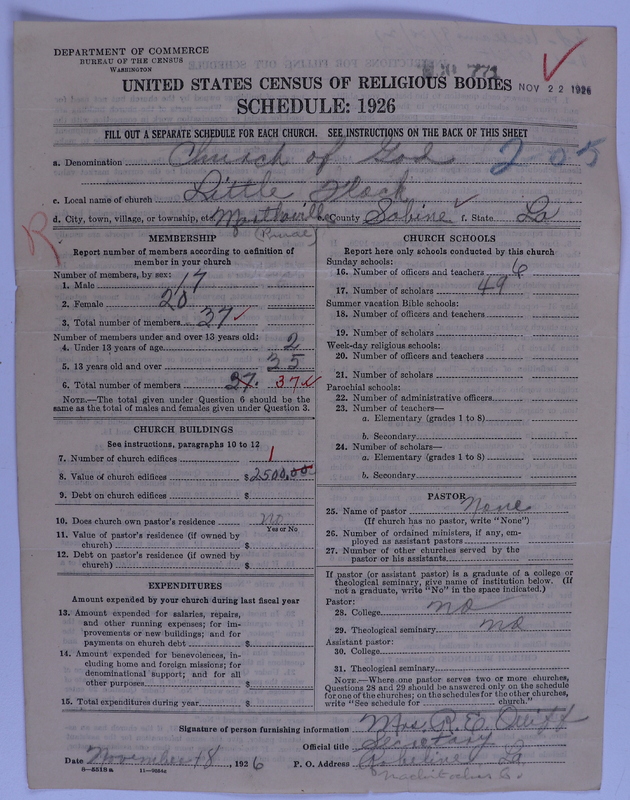 DEPARTMENT OF COMMERCE
BUREAU OF THE CENSUS
WASHINGTON
NOV 22 1926
UNITED STATES CENSUS OF RELIGIOUS BODIES
SCHEDULE: 1926
FILL OUT A SEPARATE SCHEDULE FOR EACH CHURCH. SEE INSTRUCTIONS ON THE BACK OF THIS SHEET
a. Denomination Church of God 205
c. Local name of church Little Flock
d. City, town, village, or township, etc. Marthaville e. County Sabine f. State La
(Rural)
R
MEMBERSHIP
Report number of members according to definition of member in your church
Number of members, by sex:
1. Male 17
2. Female 20
3. Total number of members 37
Number of members under and over 13 years old:
4. Under 13 years of age 2
5. 13 years old and over 35
6. Total number of members 37. 37
NOTE.—The total given under Question 6 should be the same as the total of males and females given under Question 3.
CHURCH BUILDINGS
See instructions, paragraphs 10 to 12
7. Number of church edifices 1
8. Value of church edifices $2500,00
9. Debt on church edifices $
10. Does church own pastor's residence no
Yes or No
11. Value of pastor's residence (if owned by church) $
12. Debt on pastor's residence (if owned by church) $
EXPENDITURES
Amount expended by your church during last fiscal year
13. Amount expended for salaries, repairs, and other running expenses; for improvements or new buildings; and for payments on church debt $
14. Amount expended for benevolences, including home and foreign missions; for denominational support; and for all other purposes $
15. Total expenditures during year $
CHURCH SCHOOLS
Report here only schools conducted by this church
Sunday schools:
16. Number of officers and teachers 6
17. Number of scholars 49
Summer vacation Bible schools:
18. Number of officers and teachers
19. Number of scholars
Week-day religious schools:
20. Number of officers and teachers
21. Number of scholars
Parochial schools:
22. Number of administrative officers
23. Number of teachers—
a. Elementary (grades 1 to 8)
b. Secondary
24. Number of scholars—
a. Elementary (grades 1 to 8)
b. Secondary
PASTOR
25. Name of pastor None
(If church has no pastor, write "None")
26. Number of ordained ministers, if any, employed as assistant pastors
27. Number of other churches served by the pastor or his assistants
If pastor (or assistant pastor) is a graduate of a college or theological seminary, give name of institution below. (If not a graduate, write "No" in the space indicated.)
Pastor:
28. College no
29. Theological seminary no
Assistant pastor:
30. College
31. Theological seminary
NOTE.—Where one pastor serves two or more churches, Questions 28 and 29 should be answered only on the schedule for one of the churches; on the schedules for the other churches, write "See schedule for church."
Signature of person furnishing information Mrs. R.E.
Official title Secretary
Date November 18, 1926 P. O. Address Robeline, La.
8—5518a 11—9554a Natchitoches Co.